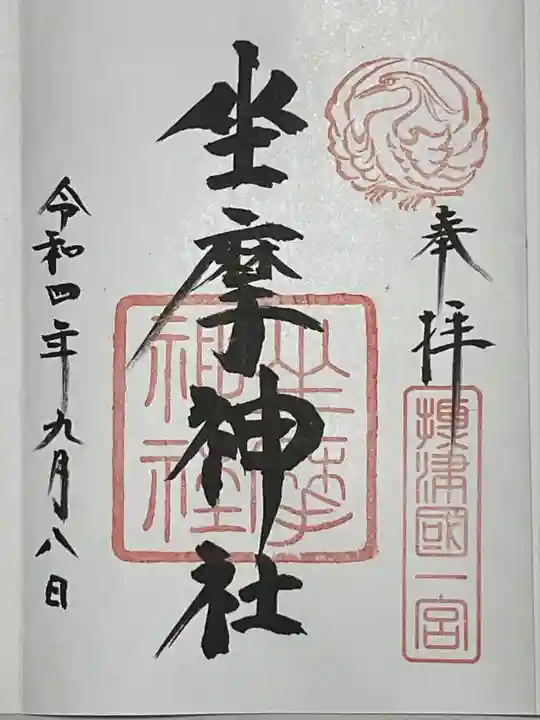 奉拝
摂津國一宮
坐摩神社
坐摩神社
令和四年九月八日